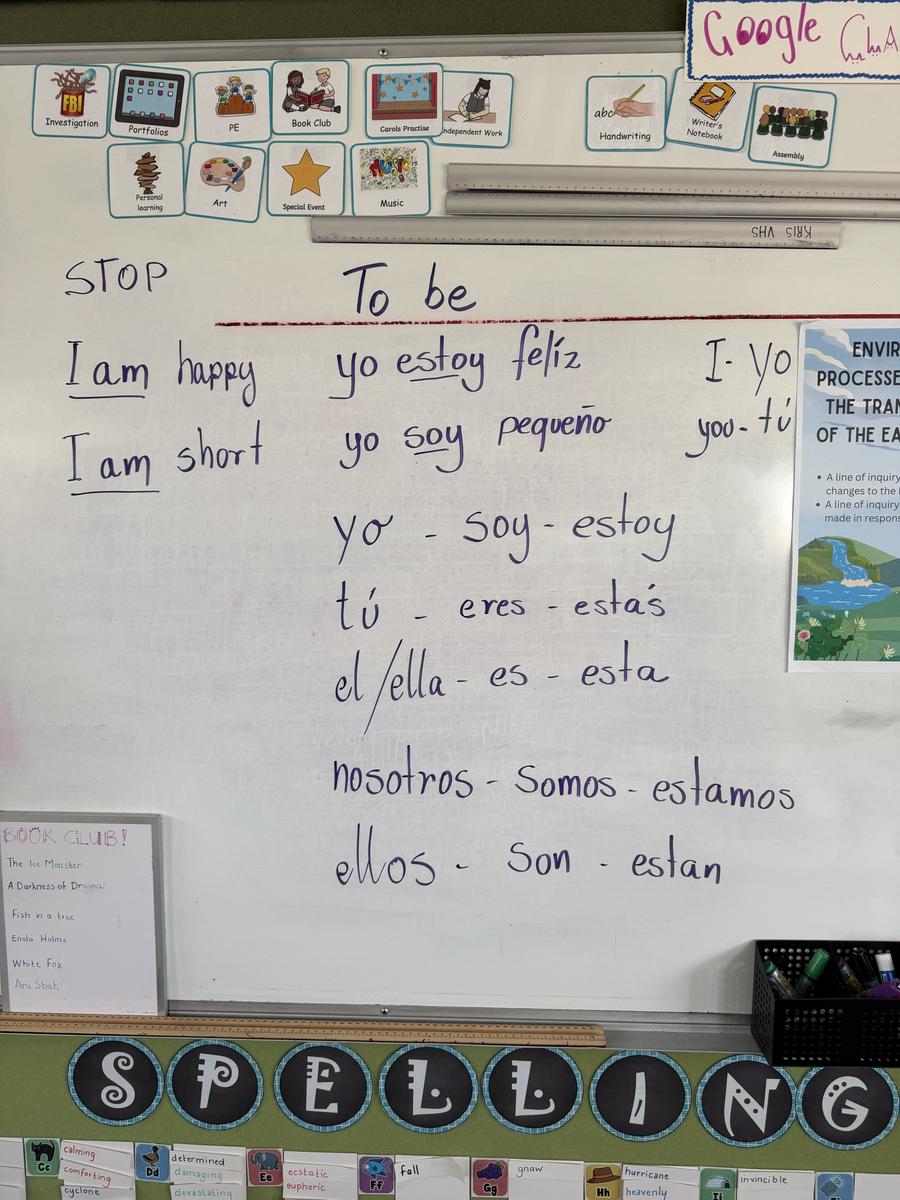 Google
FBI
Investigation
Portfolios
PE
Book Club
Carols Practise
Independent Work
abc
Handwriting
Writer's
Notebook
Assembly
Personal
learning
Art
Special Event
Music
KRIS VHS
STOP
To be
I am happy
yo estoy felíz
I- yo
I am short
yo soy pequeño
yoo- tú
yo - soy - estoy
tú - eres - estás
el/ella - es - esta
nosotros - somos - estamos
ellos - son - estan
ENVIR
PROCESSE
THE TRAN
OF THE EA
• A line of inquiry
changes to the
• A line of inquiry
made in respons
BOOK CLUB!
The Ice Monster
A Darkness of Dragons
Fish in a tree
Enola Holme
White Fox
Aru Shah
SPELLING
Cc
calming
comforting
cyclone
Dd
determined
damaging
devastating
Ee
ecstatic
euphoric
Ff
fall
Gg
gnaw
Hh
hurricane
heavenly
Ii
invincible